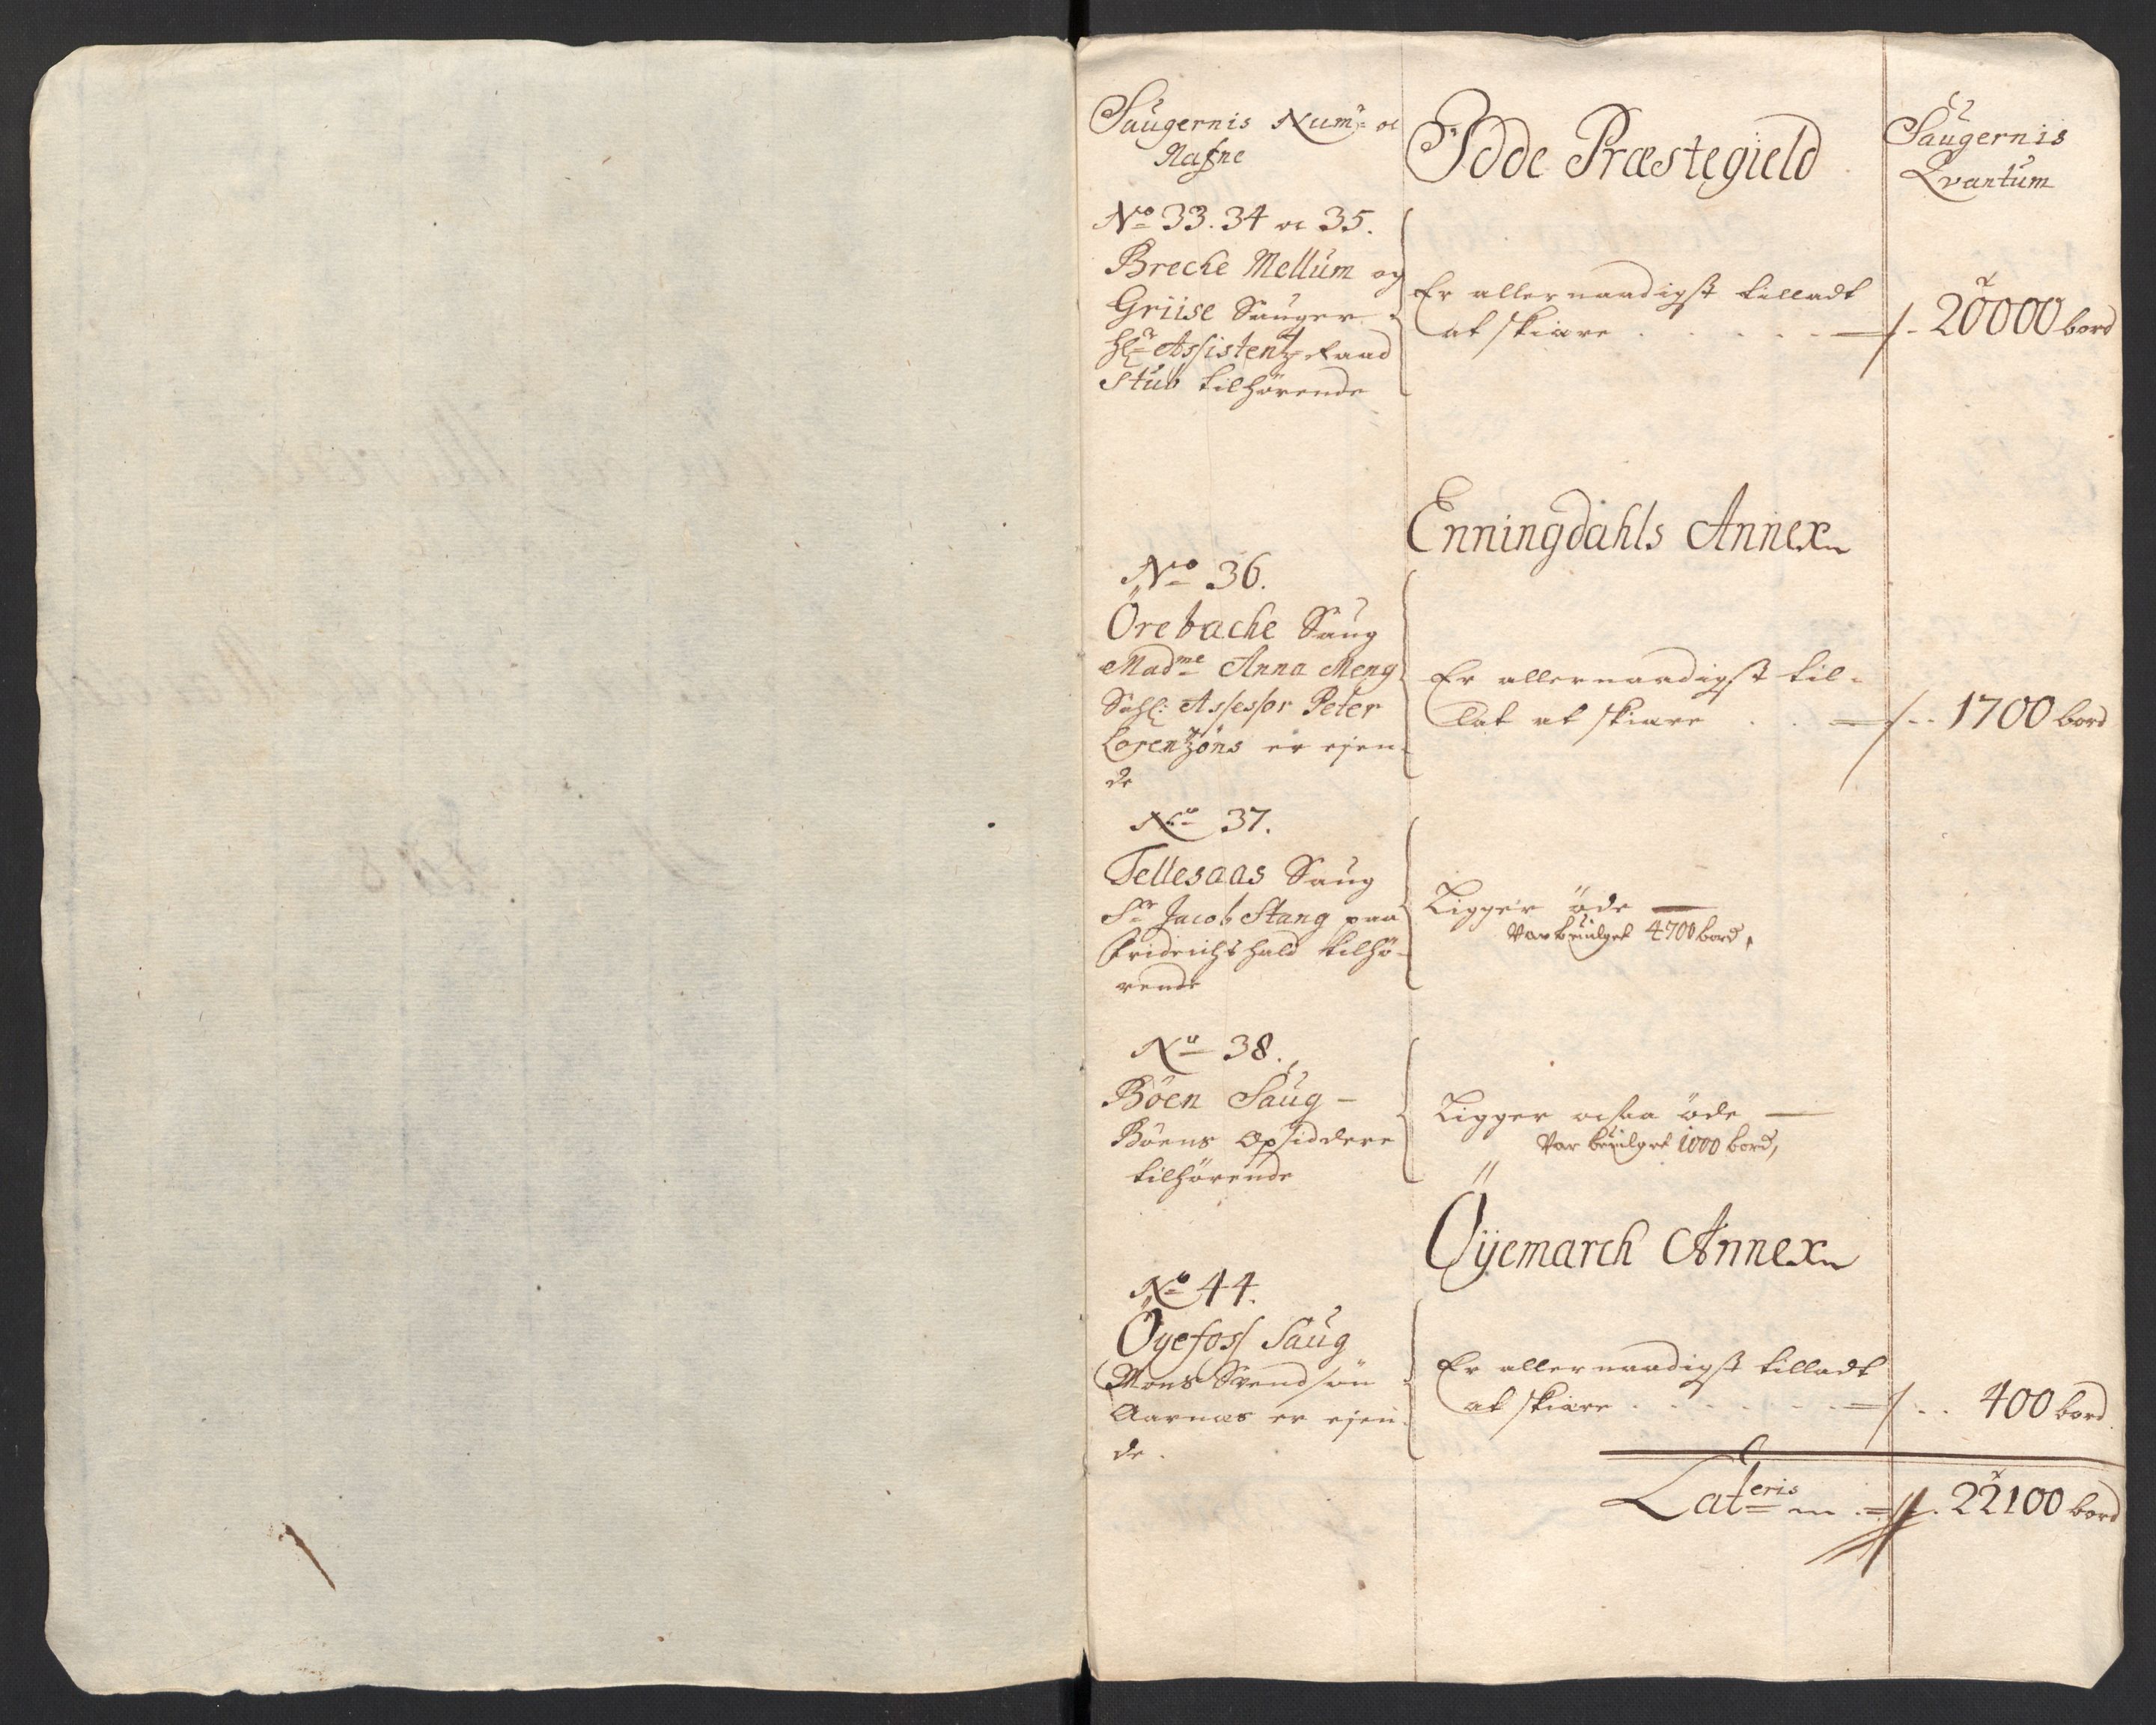 Saugernis Num: oc
Nafne
Idde Præstegield
Saugernis
Qvantum
No 33. 34 oc 35.
Breche Mellum og
Griise Sauger
Hr Assistentz Raad
Stub tilhørende
Er allernaadigst tilladt
at skiære . . . . 20000 bord
Enningdahls Annex
No 36.
Örebache Saug
Madme Anna Meng
Sahl: Assessor Peter
Lorentzöns er ejen-
de
Er allernaadigst til-
lat at skiære . . 1700 bord
No 37.
Tellesaas Saug
Sr Jacob Stang paa
Fridrichshald tilhö-
rende
Ligger öde —
Var beuilget 4700 bord,
No 38.
Böen Saug -
Böens Opsiddere
tilhörende
Ligger ocsaa öde —
Var beuilget 1000 bord,
Öÿemarch Annex
No 44.
Öyefoss Saug
Mons Svendsön
Aarnæs er ejen-
de.
Er allernaadigst tilladt
at skiære . . . . . . 400 bord
Lateris 22100 bord